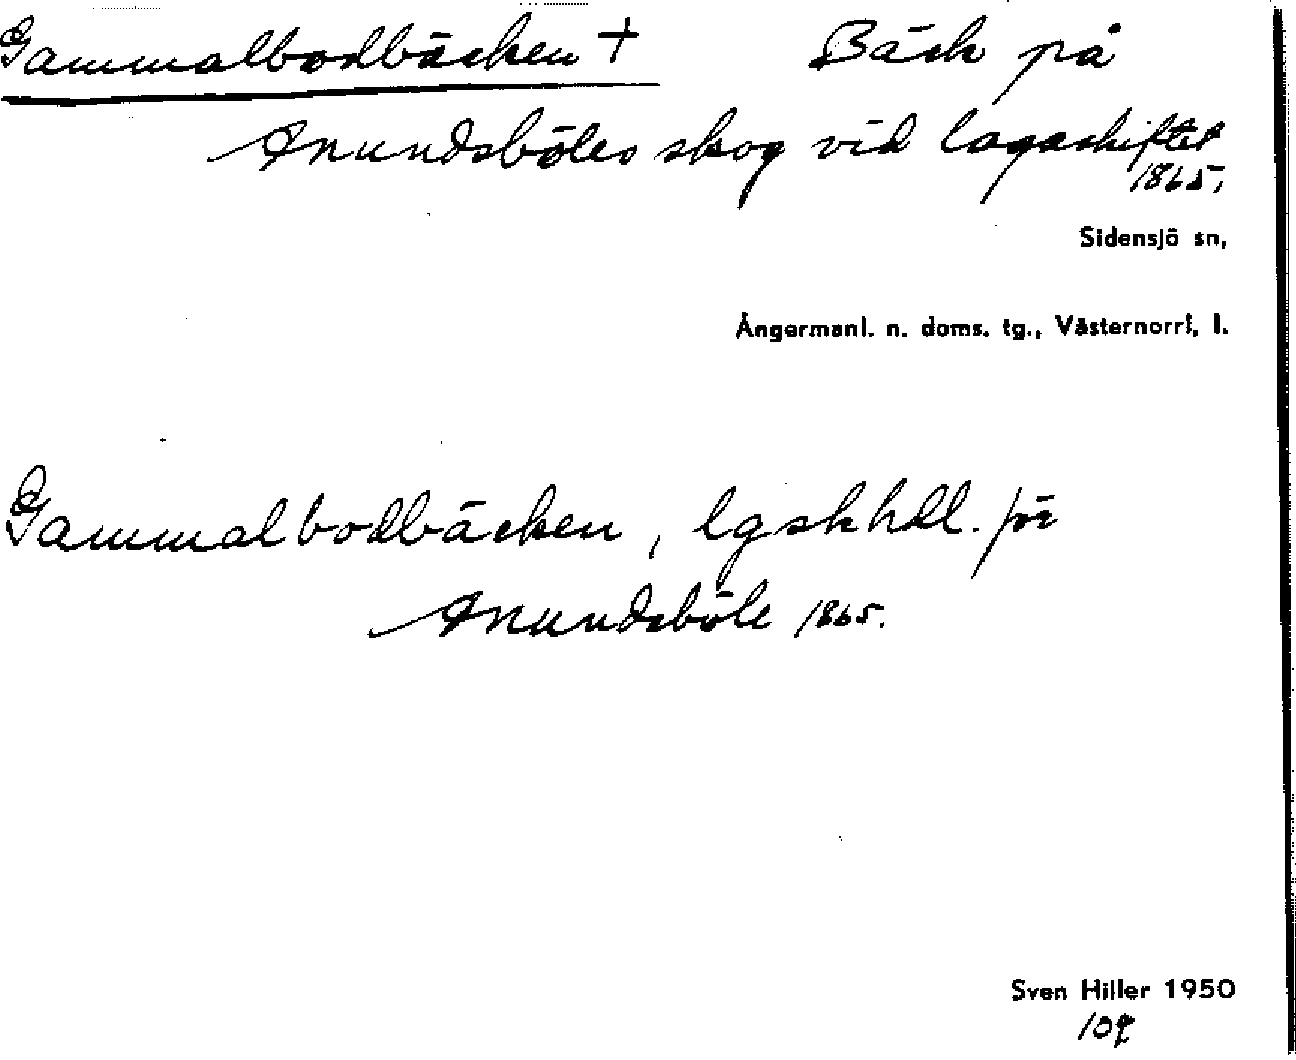 Gammalbodbäcken + Bäck på
Anundsböles skog vid lagaskiftet
1865,
Sidensjö sn,
Ångermanl. n. doms. tg., Västernorrl. l.
Gammalbodbäcken, lgskhdl. för
Anundsböle 1865.
Sven Hiller 1950